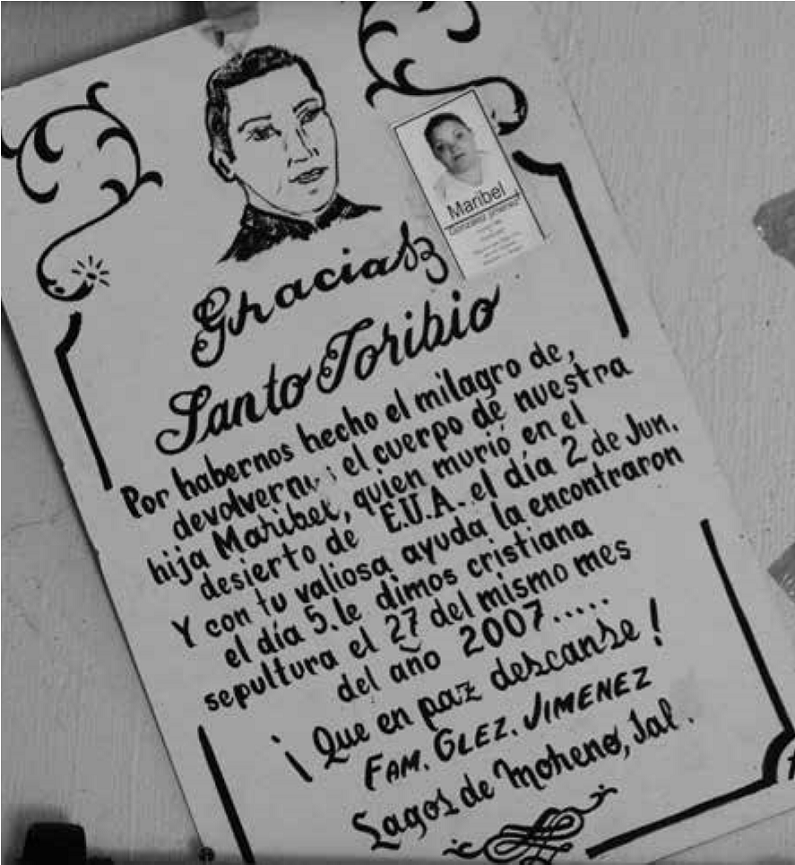 Gracias
Santo Toribio
Maribel
González Jiménez
Por habernos hecho el milagro de,
el cuerpo de nuestra
hija Maribel, quien murió en el
desierto de E.U.A. el día 2 de Jun.
Y con tu valiosa ayuda la encontraron
el día 5. le dimos cristiana
sepultura el 27 del mismo mes
del año 2007.....
¡Que en paz descanse!
FAM. GLEZ. JIMENEZ
Lagos de Moreno, Jal.